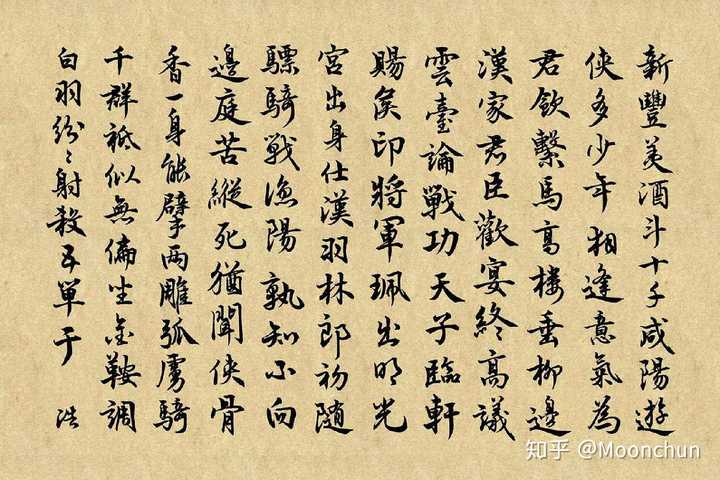 新豐美酒斗十千咸陽遊
侠多少年相逢意氣為
君飲繫馬高楼垂柳邊
漢家君臣歡宴終高議
雲臺論戰功天子臨軒
賜侯印將軍珮出明光
宮出身仕漢羽林郎初随
驃騎戰漁陽孰知不向
邊庭苦縱死猶聞侠骨
香一身能擘兩雕弧虜騎
千群祗似無偏坐金鞍調
白羽紛〻射殺五單于
知乎 @Moonchun